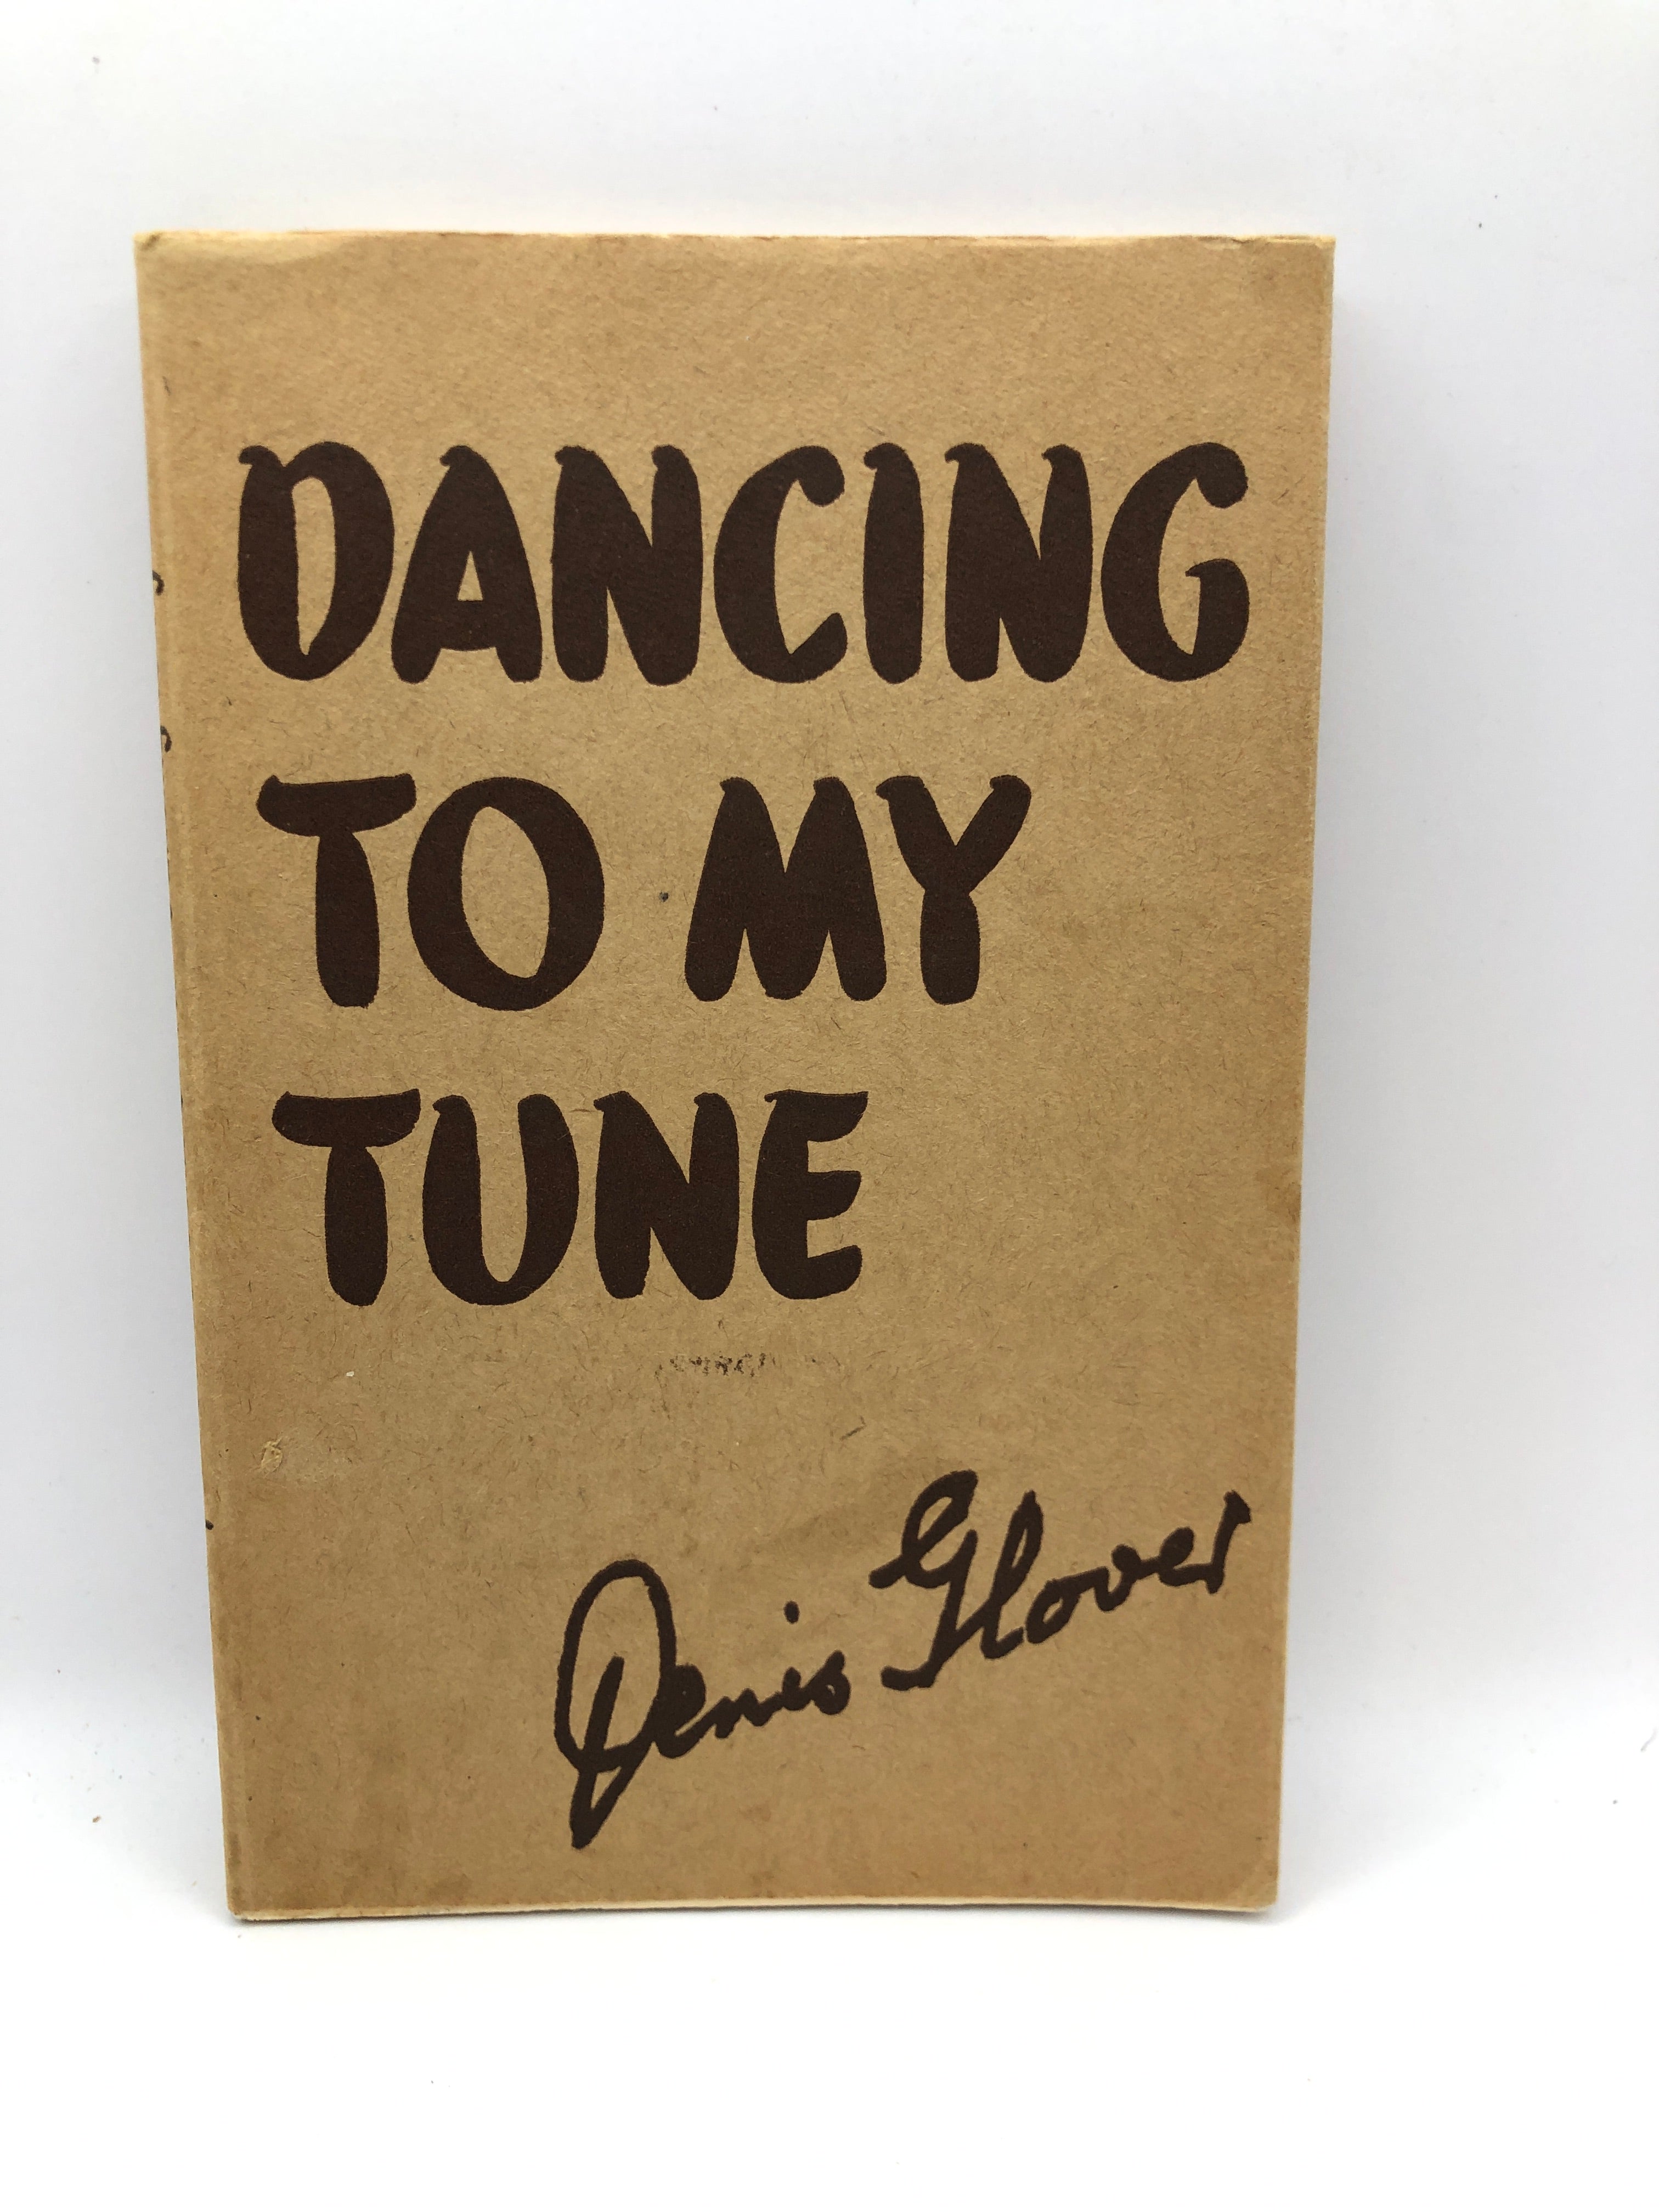 DANCING
TO MY
TUNE
Denis Glover